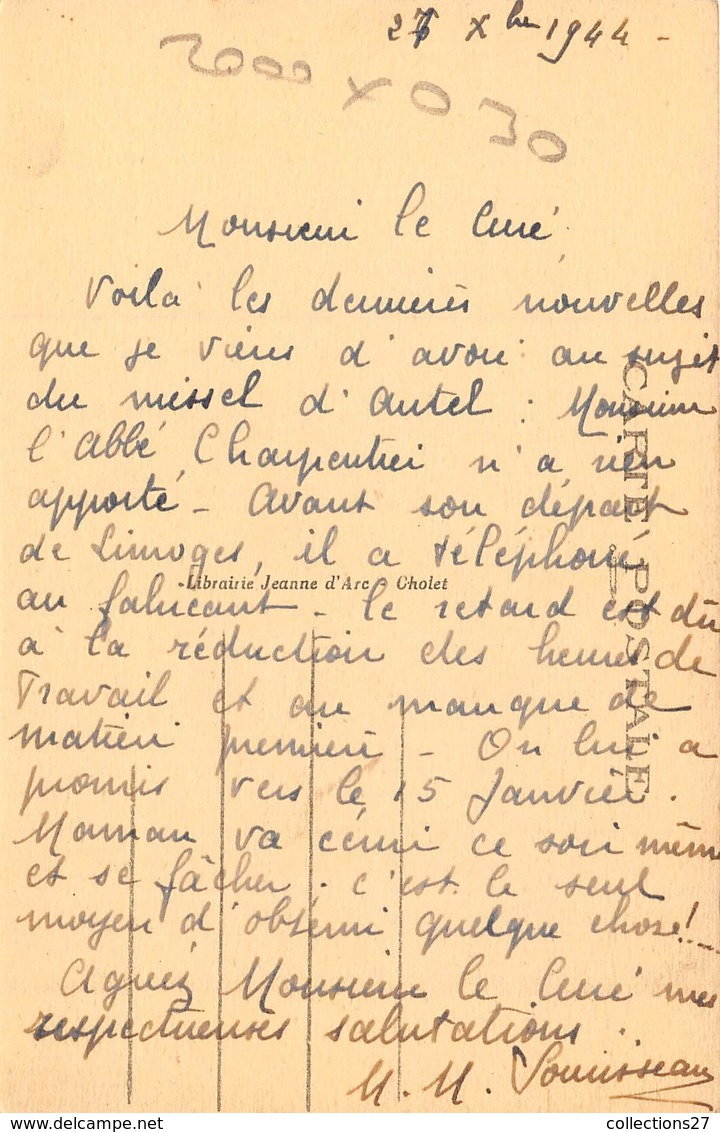 Xbre 1944 -
2000 x 0 30
Monsieur le Curé
Voilà les dernières nouvelles
que je viens d'avoir au sujet
du missel d'Autel : Monsieur
l'Abbé Charpentier n'a rien
apporté - Avant son départ
de Limoges, il a téléphoné
Librairie Jeanne d'Arc - Cholet
au fabricant - le retard est dû
à la réduction des heures de
Travail et au manque de
matière première - On lui a
promis vers le 15 Janvier.
Maman va écrire ce soir même
et se fâcher. c'est le seul
moyen d'obtenir quelque chose!..
Agréez Monsieur le Curé mes
respectueuses salutations.
M. M.
CARTE POSTALE
collections27